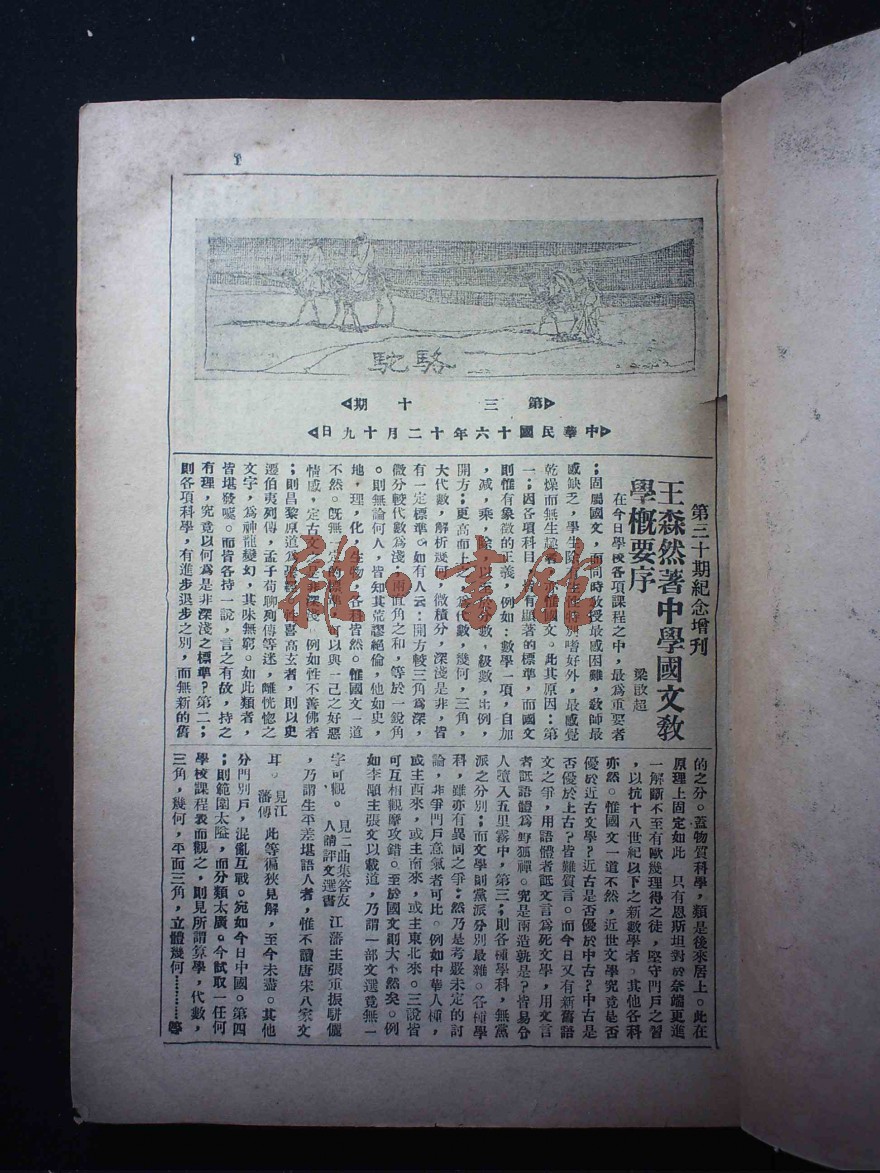 1
駱駝
第三十期
中華民國十六年十二月十九日
第三十期紀念增刊
王森然著中學國文教
學概要序
梁啟超
在今日學校各項課程之中，最為重要者
；固屬國文，而同時教授最感困難，教師最
感缺乏，學生除生性特別嗜好外，最感覺
乾燥而無生趣者，亦惟國文。此其原因：第
一；因各項科目，皆有顯著的標準，而國文
則惟有象徵的正義，例如：數學一項，自加
，减，乘，除，以至於分數，級數，比例，
開方；更高而上之為代數，幾何，三角，
大代數，解析幾何，微積分，深淺是非，皆
有一定標準。如有人云：開方較三角為深，
微分較代數為淺，兩直角之和，等於一銳角
。則無論何人，皆知其荒謬絕倫，他如史，
地，理，化，生物，各科皆然。惟國文一道
不然。旣無一定的標準，可以與一己之好惡
情感，定古文之是非深淺。例如性不善佛者
；則昌黎原道為
性喜高玄者，則以史
遷伯夷列傳，孟子荀聊列傳等迷，離恍惚之
文字，為神龍變幻，其味無窮。如此類者，
皆堪發噱。而皆各持一說，言之有故，持之
有理，究竟以何為是非深淺之標準？第二；
則各項科學，有進步退步之別，而無新的舊
的之分。蓋物質科學，類是後來居上。此在
原理上固定如此　只有恩斯坦對於奈端更進
一解斷不至有歐幾理得之徒，堅守門戶之習
，以抗十八世紀以下之新數學者。其他各科
亦然。惟國文一道不然，近世文學究竟是否
優於近古文學？近古是否優於中古？中古是
否優於上古？皆難質言。而今日又有新舊語
文之爭，用語體者詆文言為死文學，用文言
者詆語體為野狐禪。究是兩造孰是？皆易分
人墮入五里霧中，第三；則各種學科，無黨
派之分別；而文學則黨派分別最雜。各種學
科，雖亦有異同之爭；然乃是考覈未定的討
論，非爭門戶意氣者可比。例如中華人種，
或主西來，或主南來，或主東北來。三說皆
可互相觀摩攻錯。至於國文則大不然矣。例
如李顒主張文以載道，乃謂一部文選竟無一
字可觀。 見二曲集答友人論評文選書 江藩主張重振駢儷
，乃謂生平差堪語人者，惟不讀唐宋八家文
耳。 見江藩傳 此等褊狹見解，至今未盡。其他
分門別戶，混亂互戰。宛如今日中國。第四
；則範圍太隘，而分類太廣。今試取一任何
學校課程表而觀之，則見所謂算學，代數，
三角，幾何，平面三角，立體幾何…………等
雜·書館